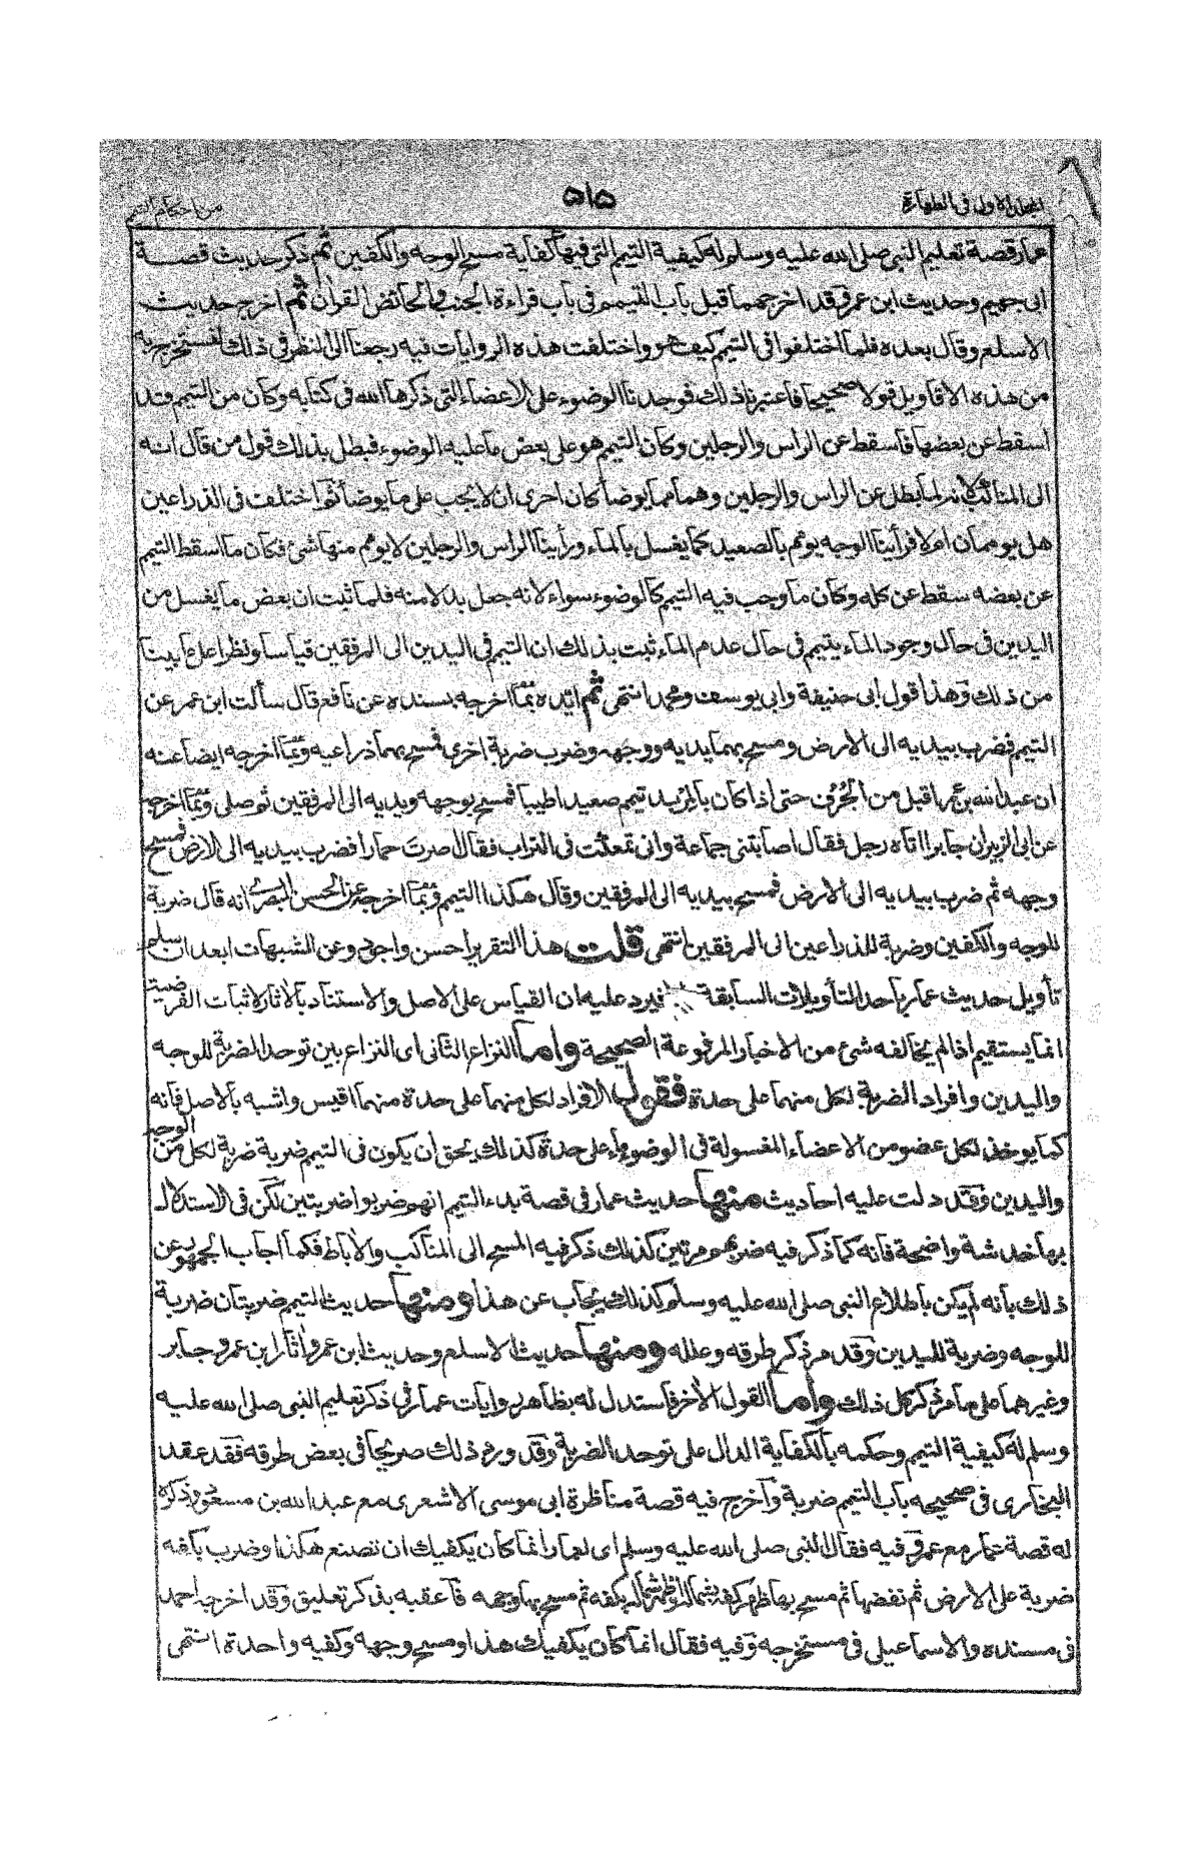 المجلد الاول فى الطهارة
۵۱۵
من احكام التيمم
عمار قصة تعليم النبى صلى الله عليه وسلم له كيفية التيمم التى فيها كفاية مسح الوجه والكفين ثم ذكر حديث قصة
ابى جهيم وحديث ابن عمر وقد اخرجهما قبل باب التيمم فى باب قراءة الجنب والحائض القران ثم اخرج حديث
الاسلع وقال بعده فلما اختلفوا فى التيمم كيف هو واختلفت هذه الروايات فيه رجعنا الى النظر فى ذلك لنستخرج به
من هذه الاقاويل قولا صحيحا فاعتبرنا ذلك فوجدنا الوضوء على الاعضاء التى ذكرها الله فى كتابه وكان من التيمم قد
اسقط عن بعضها فاسقط عن الراس والرجلين وكان التيمم هو على بعض ما عليه الوضوء فبطل بذلك قول من قال انه
الى المناكب لانه لما بطل عن الراس والرجلين وهما مما يوضأ كان احرى ان لا يجب على ما يوضأ ثم اختلف فى الذراعين
هل يوممان ام لا فرأينا الوجه يومم بالصعيد كما يغسل بالماء ورأينا الراس والرجلين لا يومم منهما شئ فكان ما اسقط التيمم
عن بعضه سقط عن كله وكان ما وجب فيه التيمم كالوضوء سواء لانه جعل بدلا منه فلما ثبت ان بعض ما يغسل من
اليدين فى حال وجود الماء يتيمم فى حال عدم الماء ثبت بذلك ان التيمم فى اليدين الى المرفقين قياسا ونظرا على ما بينا
من ذلك وهذا قول ابى حنيفة وابى يوسف ومحمد انتهى ثم ايده بما اخرجه بسنده عن نافع قال سألت ابن عمر عن
التيمم فضرب بيديه الى الارض ومسح بهما يديه ووجهه وضرب ضربة اخرى فمسح بهما ذراعيه وبما اخرجه ايضا عنه
ان عبد الله بن عمر اقبل من الجرف حتى اذا كان بالمربد تيمم صعيدا طيبا فمسح بوجهه ويديه الى المرفقين ثم صلى وبما اخرجه
عن ابى الزبير ان جابرا اتاه رجل فقال اصابتنى جماعة وانى تمعكت فى التراب فقال اصرت حمارا فضرب بيديه الى الارض فمسح
وجهه ثم ضرب بيديه الى الارض فمسح بيديه الى المرفقين وقال هكذا التيمم وبما اخرجه عن الحسن البصرى انه قال ضربة
للوجه والكفين وضربة للذراعين الى المرفقين انتهى قلت هذا التقرير احسن واجود وعن الشبهات ابعد ان سلم
تأويل حديث عمار باحد التأويلات السابقة فيرد عليه ان القياس على الاصل والاستناد بالاثار لاثبات الفرضية
انما يستقيم اذا لم يخالفه شئ من الاخبار المرفوعة الصحيحة واما النزاع الثانى اى النزاع بين توحد الضربة للوجه
واليدين وافراد الضربة لكل منهما على حدة فنقول الافراد لكل منهما على حدة منهما اقيس واشبه بالاصل فانه
كما يوخذ لكل عضو من الاعضاء المغسولة فى الوضوء ماء على حدة كذلك يحق أن يكون فى التيمم ضربة ضربة لكل من الوجه
واليدين وقد دلت عليه احاديث منها حديث عمار فى قصة بدء التيمم انهم ضربوا ضربتين لكن فى الاستدلال
بها خدشة واضحة فانه كما ذكر فيه ضربهم مرتين كذلك ذكر فيه المسح الى المناكب والاباط فكما اجاب الجمهور عن
ذلك بانه لم يكن باطلاع النبى صلى الله عليه وسلم كذلك يجاب عن هذا ومنها حديث التيمم ضربتان ضربة
للوجه وضربة لليدين وقد مر ذكر طرقه وعلله ومنها حديث الاسلع وحديث ابن عمر واثار ابن عمر وجابر
وغيرهما على ما مر ذكر كل ذلك واما القول الأخر فاستدل له بظاهر روايات عمار فى ذكر تعليم النبى صلى الله عليه
وسلم له كيفية التيمم وحكمه بالكفاية الدال على توحد الضربة وقد ورد ذلك صريحا فى بعض طرقه فقد عقد
البخارى فى صحيحه باب التيمم ضربة وأخرج فيه قصة مناظرة ابى موسى الاشعرى مع عبد الله بن مسعود وذكره
له قصة عمار مع عمر وفيه فقال النبى صلى الله عليه وسلم اى لعمار انما كان يكفيك ان تصنع هكذا وضرب بكفه
ضربة على الارض ثم نفضها ثم مسح بها ظهر كفه بشماله او ظهر شماله بكفه ثم مسح بها وجهه فاعقبه بذكر تعليق وقد اخرجه احمد
فى مسنده والاسماعيلى فى مستخرجه وفيه فقال انما كان يكفيك هذا ومسح وجهه وكفيه واحدة انتهى